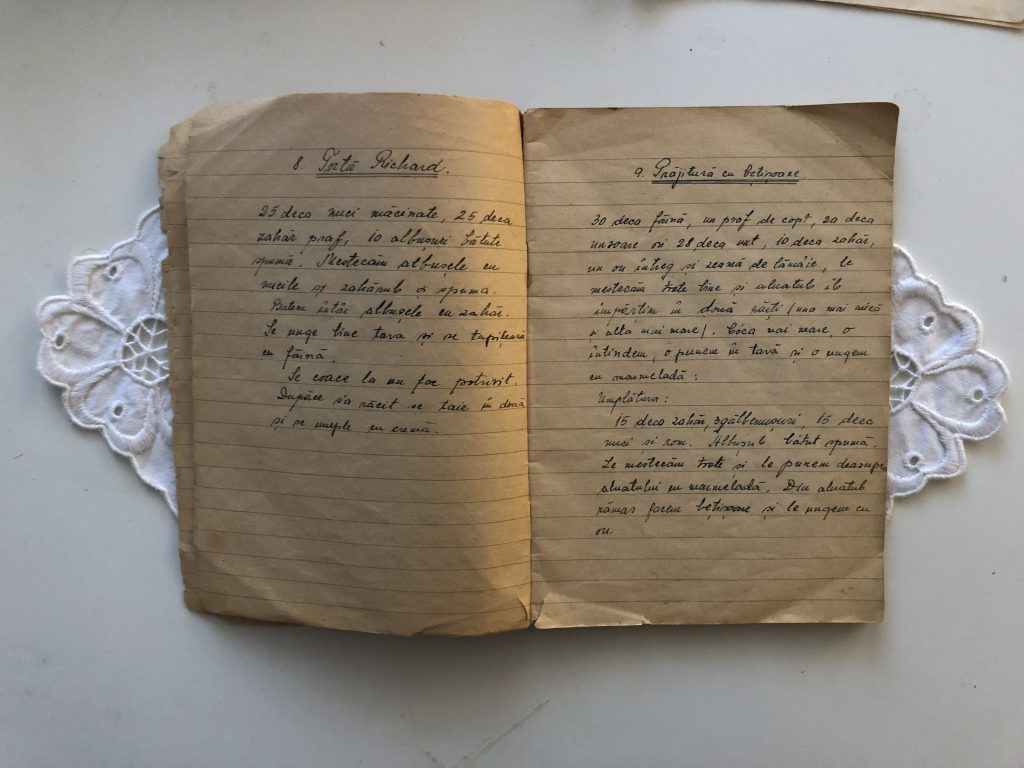 8. Tortă Richard.
25 deca nuci măcinate, 25 deca
zahăr praf, 10 albușuri bătute
spumă. Mestecăm albușele cu
nucile și zahărul și spuma.
Batem întâi albușele cu zahăr.
Se unge bine tava și se tapițează
cu făină.
Se coace la un foc potrivit.
Dupăce s'a răcit se taie în două
și se umple cu cremă.
9. Prăjitură cu bețișoare.
30 deca făină, un praf de copt, 20 deca
unsoare ori 28 deca unt, 10 deca zahăr,
un ou întreg si zeamă de lămâie, le
mestecăm toate bine si aluatul îl
împărțim în două părți (una mai mică
si alta mai mare). Cóca mai mare, o
întindem, o punem în tavă și o ungem
cu marmeladă:
Umplătura:
15 deca zahăr, 3 gălbenușuri, 15 deca
nuci și rom. Albușul bătut spumă.
Le mestecăm toate si le punem deasupra
aluatului cu marmeladă. Din aluatul
rămas facem bețișoare și le ungem cu
ou.